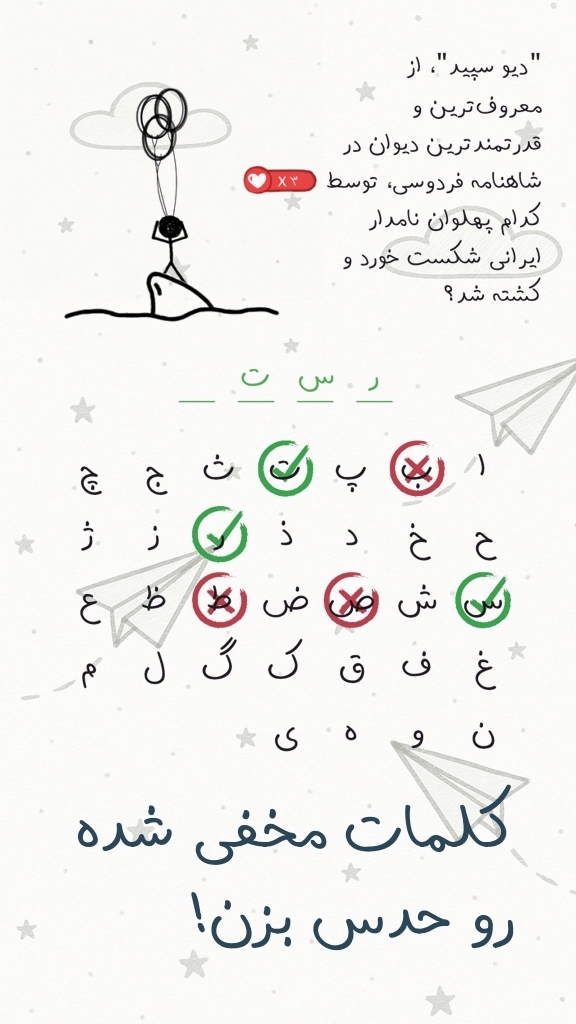 "دیو سپید"، از
معروف‌ترین و
قدرتمندترین دیوان در
شاهنامه فردوسی، توسط
X ۳
کدام پهلوان نامدار
ایرانی شکست خورد و
کشته شد؟
ر س ت _
ا ب پ ت ث ج چ
ح خ د ذ ر ز ژ
س ش ص ض ط ظ ع
غ ف ق ک گ ل م
ن و ه ی
کلمات مخفی شده
رو حدس بزن!